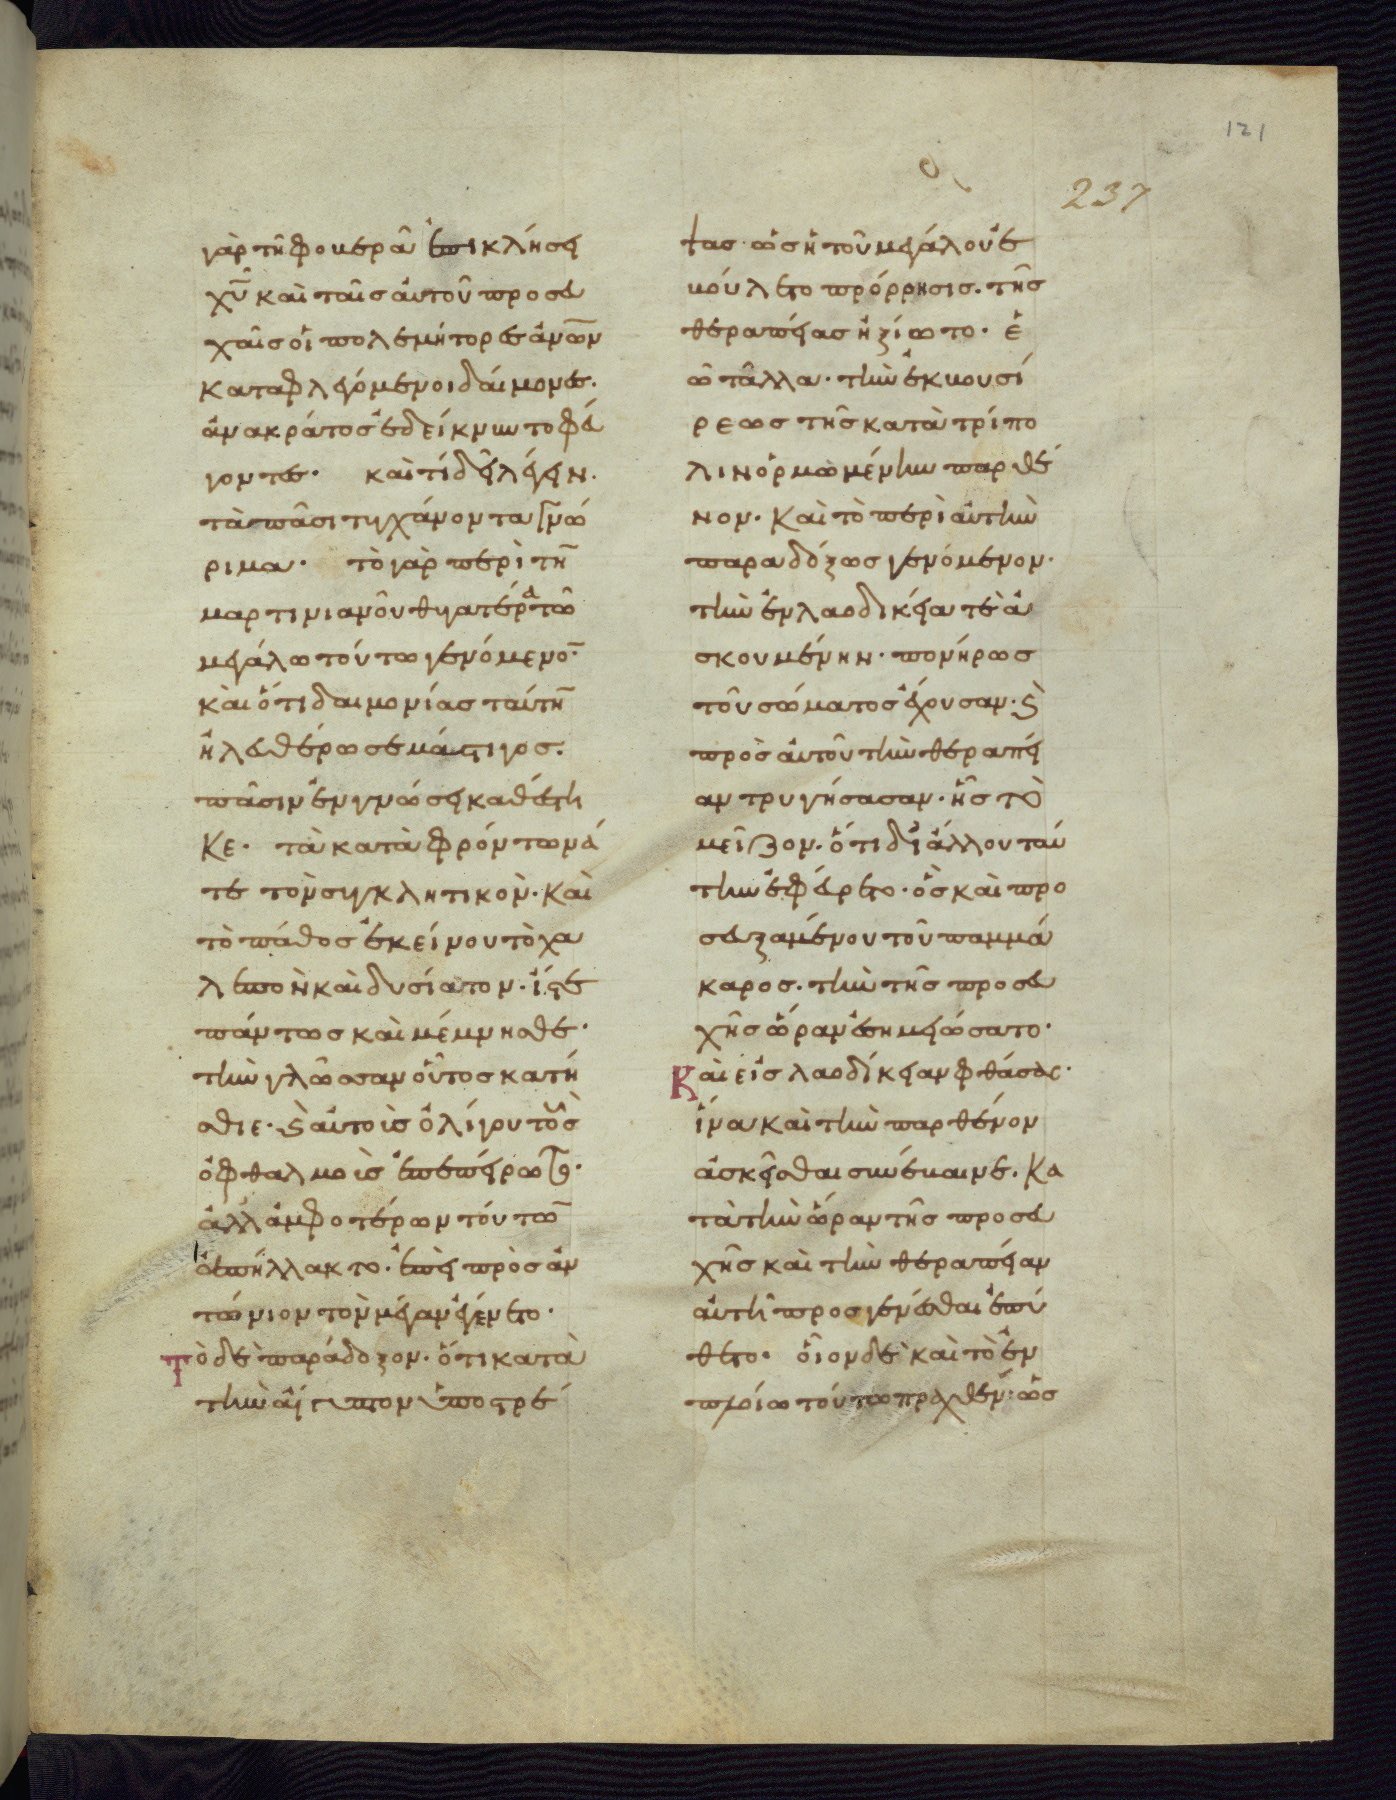 121
237
γὰρ τῆ φοβερᾶ ἐπικλήσει
χῡ καὶ ταῖς αὐτοῦ προσευ
χαῖς οἱ πολεμήτορες ἀν̅ω̅ν
καταφλεγόμενοι δαίμονες.
ἀνακράτος ἐδείκνυντο φεύ
γοντες. καὶ τί δεῖ λέγειν.
τὰ πᾶσι τυγχάνοντα γνώ
ριμα. τὸ γὰρ περὶ τὴν
μαρτινιανοῦ θυγατέρα τῶ
μεγάλω τούτω γενόμενον.
καὶ ὅτι δαιμονίας ταύτην
ἠλευθέρωσε μάστιγος.
πᾶσιν ἐν γνώσει καθέστη
κε. τὰ κατὰ φρόντωνά
τε τὸν συγκλητικόν. καὶ
τὸ πάθος ἐκείνου τὸ χα
λεπὸν καὶ δυσίατον. ἴστε
πάντως καὶ μέμνησθε.
τὴν γλῶσσαν οὗτος κατή
σθιε. καὶ αὐτοῖς ὀλίγου τοῖς
ὀφθαλμοῖς ἐπεπήρωτο.
ἀλλ ἀμφοτέρων τούτων
ἀπήλλακτο. ἐπεὶ πρὸς ἀν
τώνιον τὸν μέγαν ἐγένετο.
Τὸ δὲ παράδοξον. ὅτι κατὰ
τὴν αἴγυπτον ὑποστρέ
ψας ὡς ἡ τοῦ μεγάλου ἐ
βούλετο πρόρρησις. τῆς
θεραπείας ἠξίωτο. ἐ
ῶ τἄλλα. τὴν ἐκ βουσί
ρεως τῆς κατὰ τρίπο
λιν ὁρμωμένην παρθέ
νον. καὶ τὸ περὶ αὐτὴν
παραδόξως γενόμενον.
τὴν ἐν λαοδικεία τὲ ἀ
σκουμένην. πονήρως
τοῦ σώματος ἔχουσαν. καὶ
πρὸς αὐτοῦ τὴν θεραπεί
αν τρυγήσασαν. ἧς τὸ
μεῖζον. ὅτι δι ἄλλου ταύ
την ἐφεύρετο. ὃς καὶ προ
σευξαμένου τοῦ παμμά
καρος. τὴν τῆς προσευ
χῆς ὥραν ἐσημειώσατο.
Καὶ εἰς λαοδίκειαν φθάσας.
ἵνα καὶ τὴν παρθένον
ἀσκεῖσθαι συνέβαινε. κα
τὰ τὴν ὥραν τῆς προσευ
χῆς καὶ τὴν θεραπείαν
αὐτῆ προσγενέσθαι ἐπύ
θετο. οἷον δὲ καὶ τὸ ἐν
πλοίω τούτω πραχθέν. ὡς